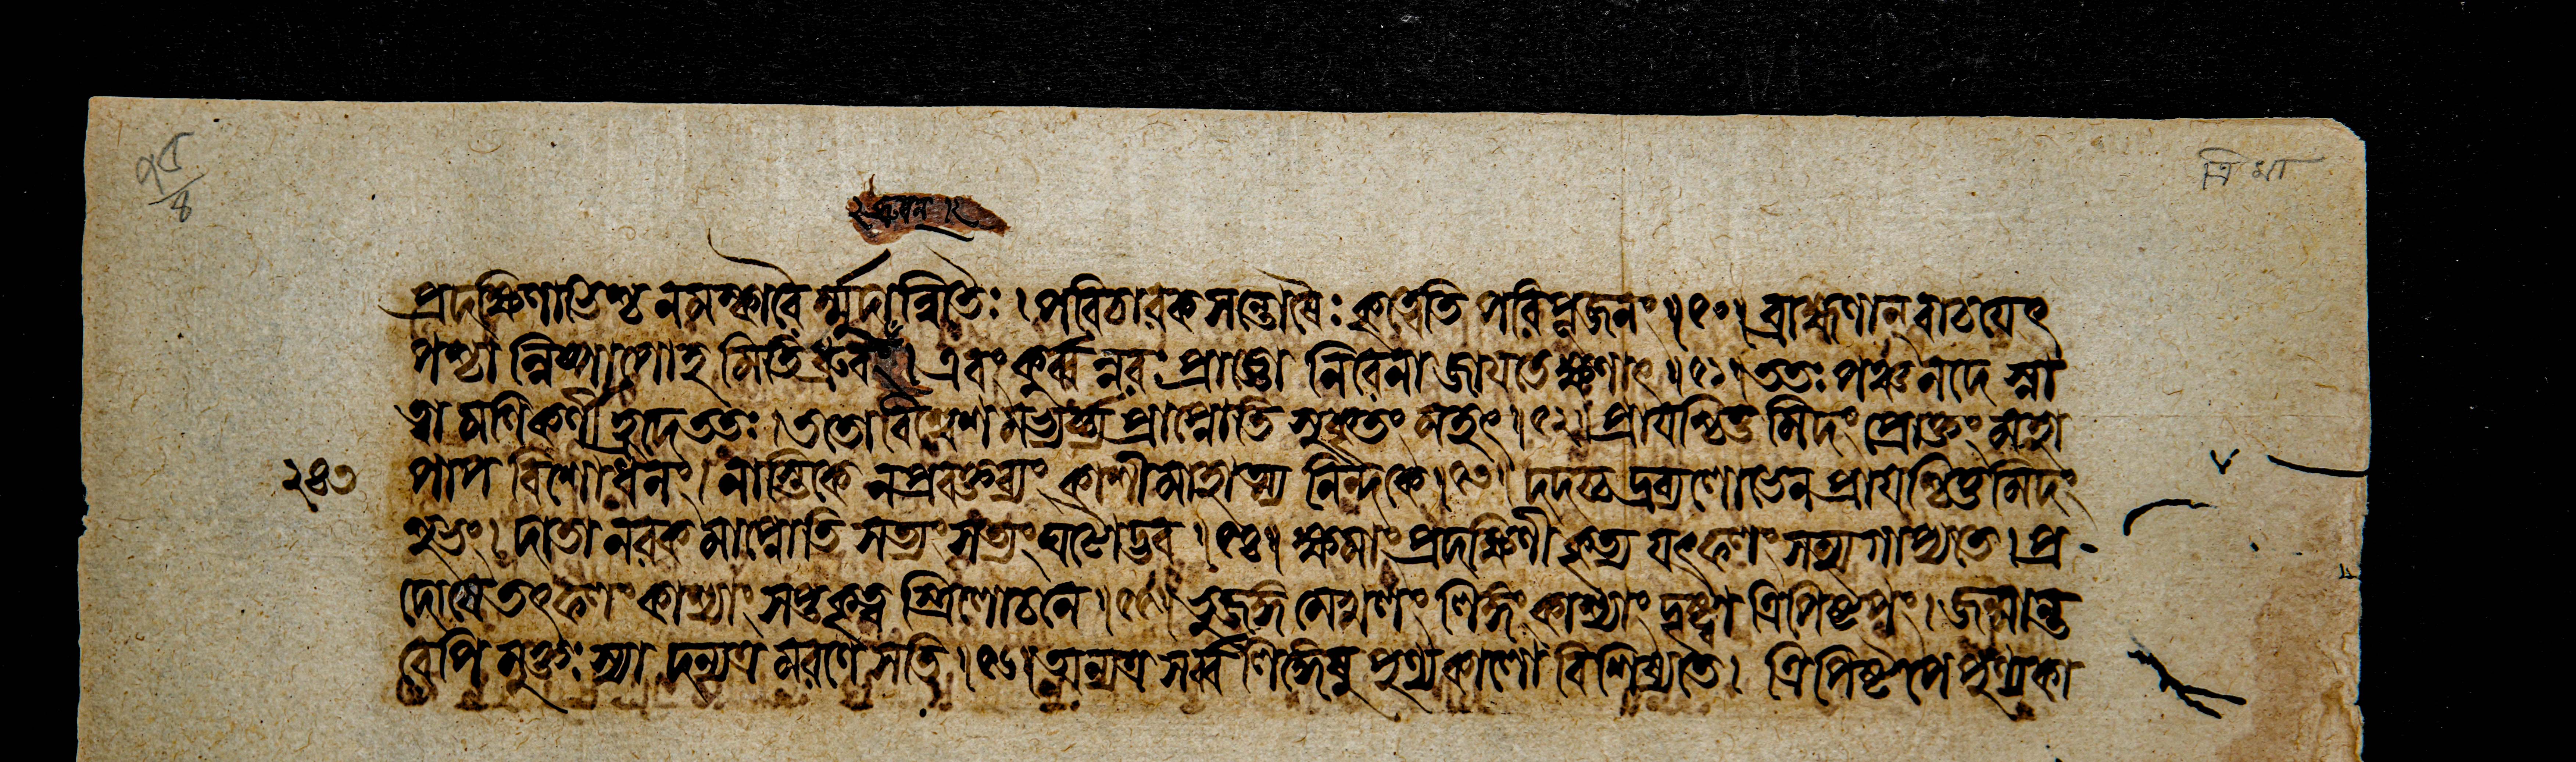 ২ ধ্রুবন্ ।২
প্রদক্ষিণাভিশ্চ নমস্কারৈ র্ম্মুদান্বিতৈঃ । পরিচারকসন্তোষৈঃ কৃত্বেতি পরিপূজনং ॥৫০॥ ব্রাহ্মণান্ বাচয়েৎ
পশ্চা ন্নিষ্পাপোহ মিতি ধ্রুবন্ । এবং কুর্ব্বন্নরঃ প্রাজ্ঞো নিরেনা জায়তে ক্ষণাৎ ॥৫১॥ ততঃ পঞ্চনদে স্না
ত্বা মণিকর্ণীহ্রদে ততঃ । ততো বিশ্বেশ মভ্যর্চ্চ্য প্রাপ্নোতি সুকৃতং মহৎ ॥৫২॥ প্রায়শ্চিত্ত মিদং প্রোক্তং মহা
২৪৩ পাপ বিশোধনং । নাস্তিকে ন প্রবক্তব্যং কাশীমাহাত্ম্য নিন্দকে ॥৫৩॥ দদচ্চ দ্রব্যলোভেন প্রায়শ্চিত্তমিদং
শুভং । দাতা নরক মাপ্নোতি সত্যং সত্যং ঘটোদ্ভব ॥৫৪॥ ক্ষমাং প্রদক্ষিণী কৃত্য যৎফলং সম্যগাপ্যতে । প্র
দোষে তৎফলং কাশ্যাং সপ্তকৃত্ব স্ত্রিলোচনে ॥৫৫॥ ভুজঙ্গ মেখলং লিঙ্গং কাশ্যাং দৃষ্ট্বা ত্রিপিষ্টপং । জন্মান্ত
রেপি মুক্তঃ স্যা দন্যত্র মরণে সতি ॥৫৬॥ অন্যত্র সর্ব্ব লিঙ্গেষু পুণ্যকালো বিশিষ্যতে । ত্রিপিষ্টপে পুণ্যকা